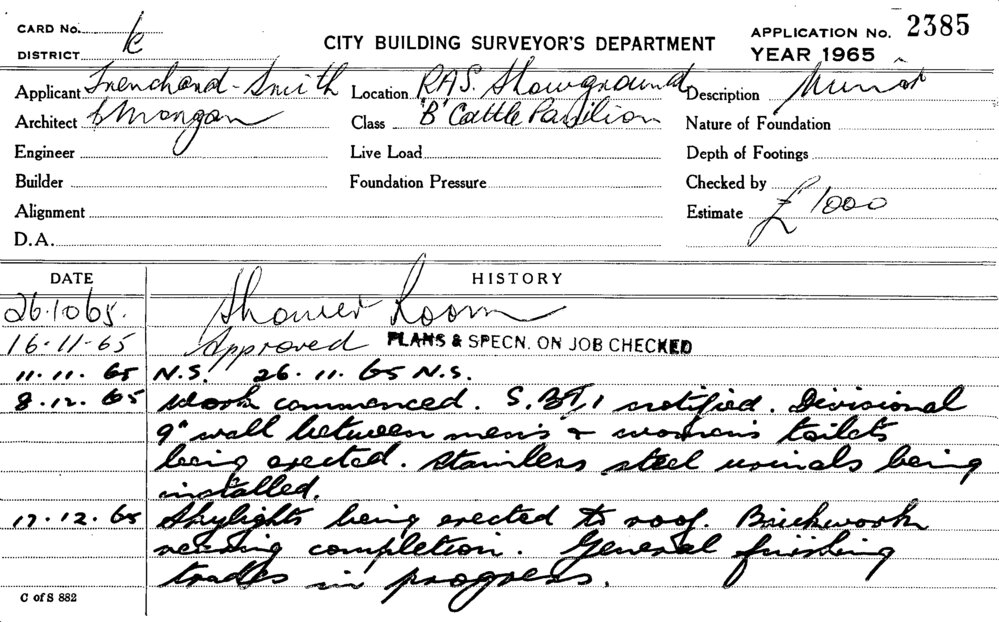 CARD No.
DISTRICT K
CITY BUILDING SURVEYOR'S DEPARTMENT
APPLICATION No. 2385
YEAR 1965
Applicant Trenchard-Smith Location RAS. Showground Description Minor
Architect & Morgan Class 'B' Cattle Pavilion Nature of Foundation
Engineer Live Load Depth of Footings
Builder Foundation Pressure Checked by
Alignment Estimate £1000
D.A.
DATE HISTORY
26.10.65. Shower Room
16-11-65 Approved PLANS & SPECN. ON JOB CHECKED
11.11.65 N.S. 26.11.65 N.S.
8.12.65 Work commenced. notified. Divisional
9" wall between men's & women's toilets
being erected. Stainless steel urinals being
installed.
17.12.65 Skylights being erected to roof. Brickwork
nearing completion. General finishing
trades in progress.
C of S 882